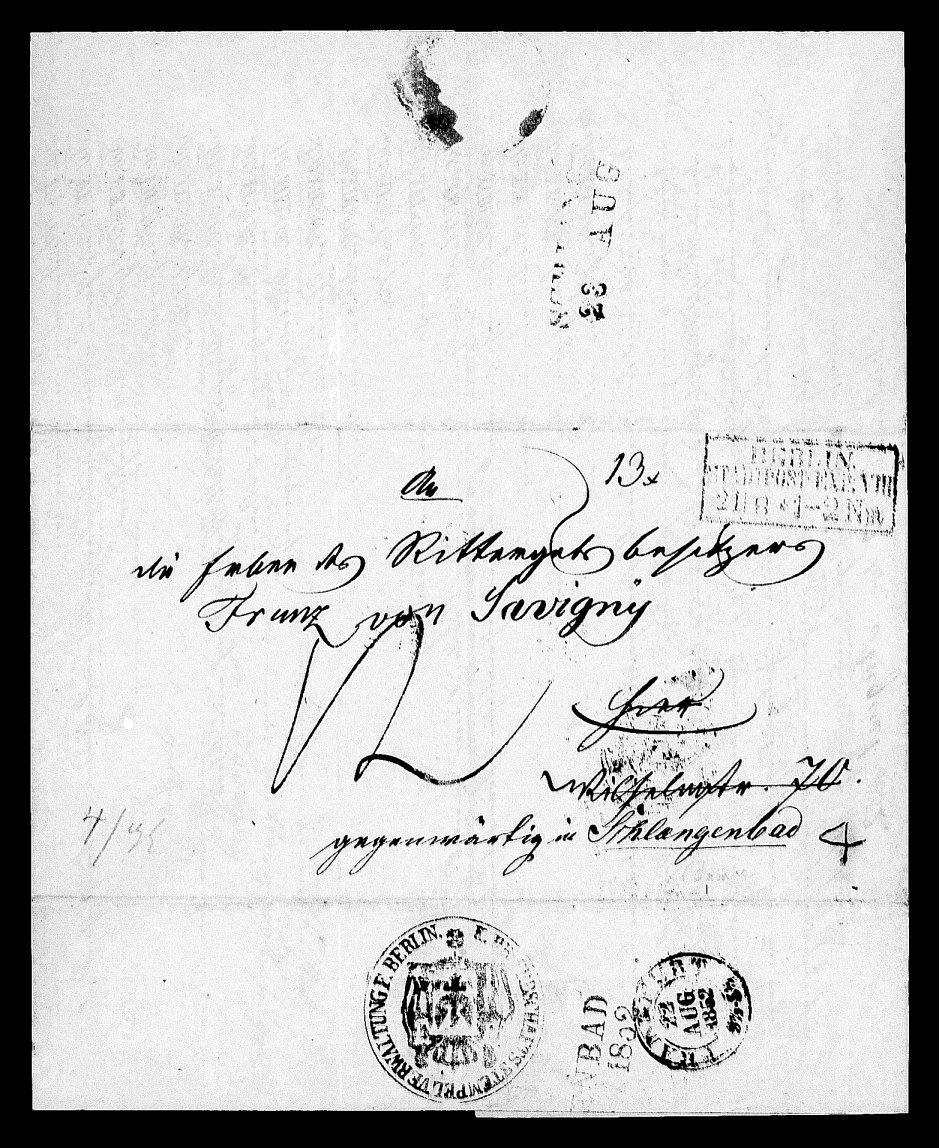 23 AUG
13x
BERLIN
STADTPOST-EXP. VIII
21 8 * 1-2 Nm
An
die Erben des Rittergutsbesitzers
Franz von Savigny
hier
Wilhelmstr. 70.
gegenwärtig in Schlangenbad
4
4/
VERWALTUNG F. BERLIN.
NBAD
1852
22
AUG
1852